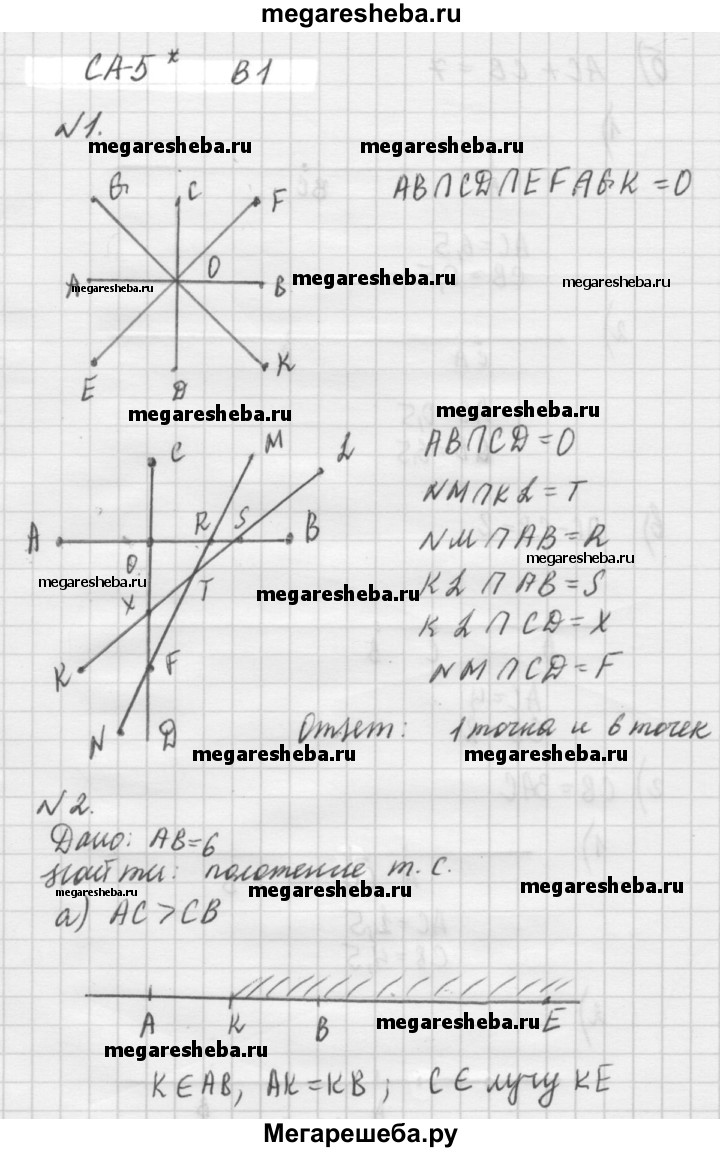 megaresheba.ru
СА-5* В1
№1.
megaresheba.ru megaresheba.ru
G C F
AB∩CD∩EF∩GK = O
A O B
megaresheba.ru megaresheba.ru megaresheba.ru
E D K
megaresheba.ru megaresheba.ru
C M L
AB∩CD = O
NM∩KL = T
A R S B
NM∩AB = R
megaresheba.ru
O
megaresheba.ru T megaresheba.ru
KL∩AB = S
X
KL∩CD = X
K F
NM∩CD = F
N D
Ответ: 1 точка и 6 точек
megaresheba.ru megaresheba.ru
№2.
Дано: AB=6
Найти: положение т. С.
megaresheba.ru megaresheba.ru megaresheba.ru
а) AC > CB
A K B E
megaresheba.ru
megaresheba.ru
K∈AB, AK = KB; C∈ лучу KE
Мегарешеба.ру